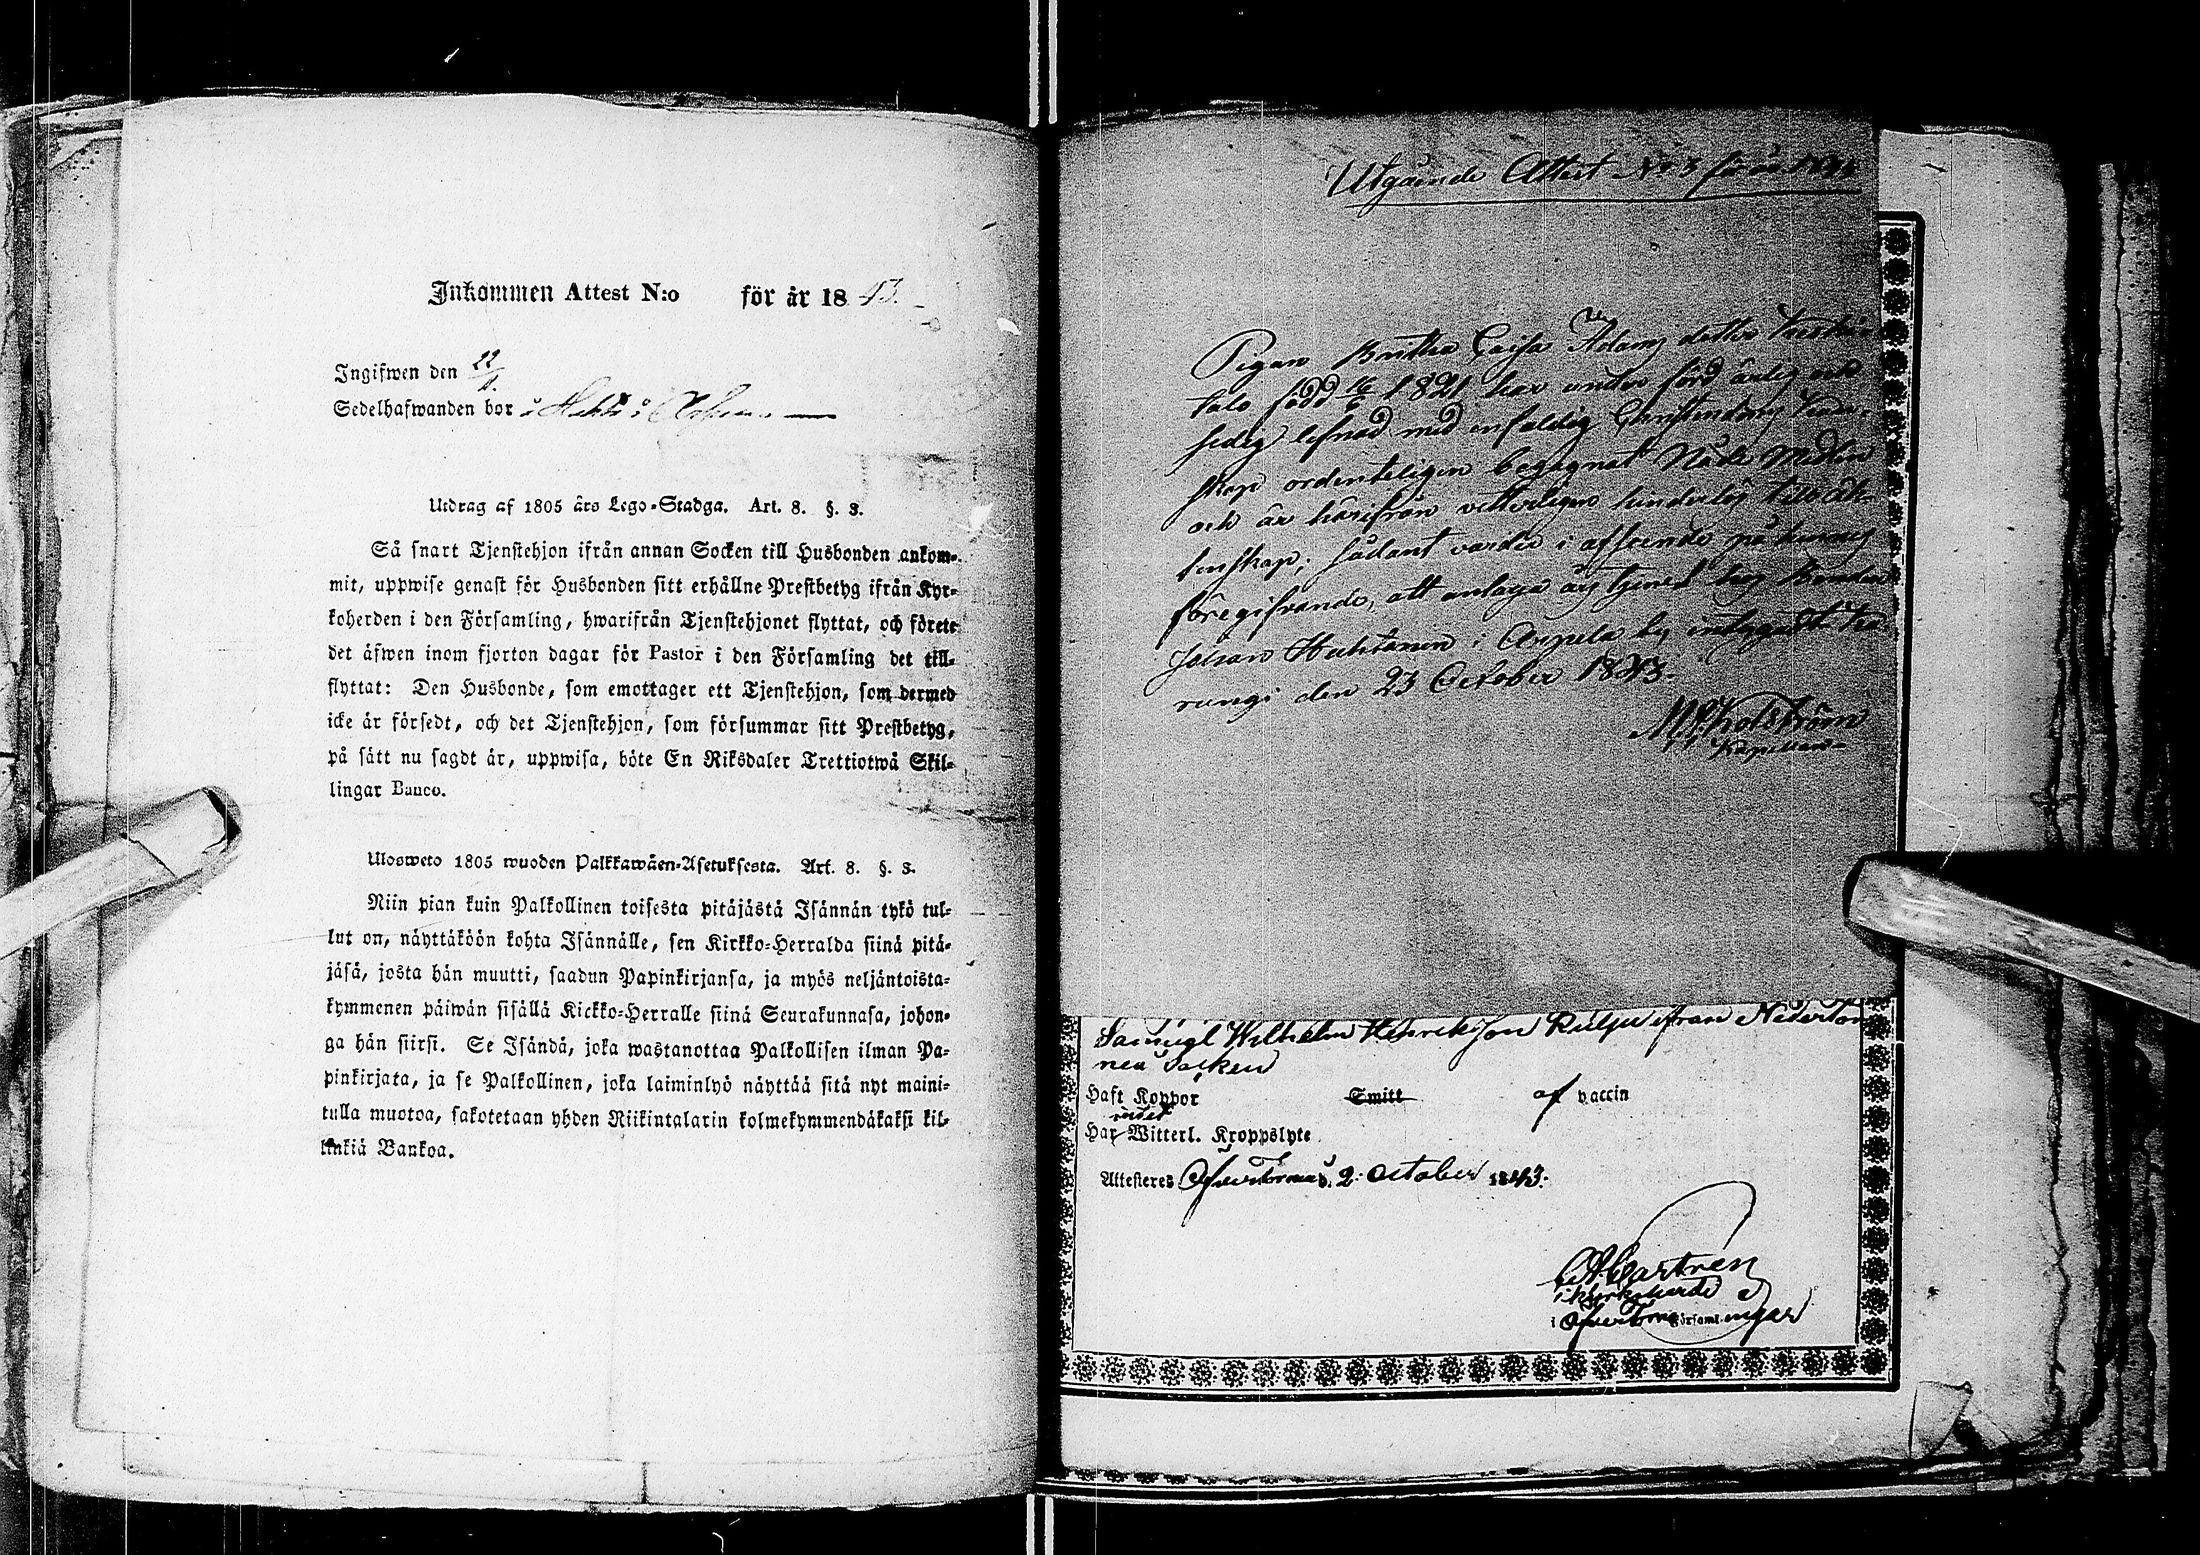 Inkommen Attest N:o för år 1843.
Ingifwen den 22/11.
Sedelhafwanden bor i
Utdrag af 1805 års Lego-Stadga. Art. 8. §. 3.
Så snart Tjenstehjon ifrån annan Socken till Husbonden ankom-
mit, uppwise genast för Husbonden sitt erhållne Prestbetyg ifrån Kyr-
koherden i den Församling, hwarifrån Tjenstehjonet flyttat, och förete
det äfwen inom fjorton dagar för Pastor i den Församling det till-
flyttat: Den Husbonde, som emottager ett Tjenstehjon, som dermed
icke är försedt, och det Tjenstehjon, som försummar sitt Prestbetyg,
på sätt nu sagdt är, uppwisa, böte En Riksdaler Trettiotwå Skil-
lingar Banco.
Ulosweto 1805 wuoden Palkkawäen-Asetuksesta. Art. 8. §. 3.
Niin pian kuin Palkollinen toisesta pitäjästä Isännän tykö tul-
lut on, näyttäköön kohta Isännälle, sen Kirkko-Herralda siinä pitä-
jäsä, josta hän muutti, saadun Papinkirjansa, ja myös neljäntoista-
kymmenen päiwän sisällä Kirkko-Herralle siinä Seurakunnasa, johon-
ga hän siirsi. Se Isändä, joka wastanottaa Palkollisen ilman Pa-
pinkirjata, ja se Palkollinen, joka laiminlyö näyttää sitä nyt maini-
tulla muotoa, sakotetaan yhden Riikintalarin kolmekymmendäkaksi kil-
linkiä Bankoa.
Utgående Attest No 3 för år 1843
Pigan Britha Caisa Adams dotter
talo född 1821 har under förd ärlig och
sedig lefnad med enfaldig Christendoms kun-
skap ordenteligen begagnat Nåde Medlen
och är härifrån vetterligen hinderlös till äk-
tenskap; sådant varder i afseende på hennes
föregifvande, att antaga års tjenst hos Bonden
Johan Huhtanen i Anjela by intygadt. Ka-
rungi den 23 October 1843.
Kapellan
Samuel Wilhelm Henriksson ifrån Nedertor-
neå Socken
Haft Koppor Smitt af vaccin
intet
Har Witterl. Kroppslyte
Attesteres Öfvertorneå d. 2 October 1843.
C A Castrén
Kyrkoherde
i Öfvertorneå Församlingar